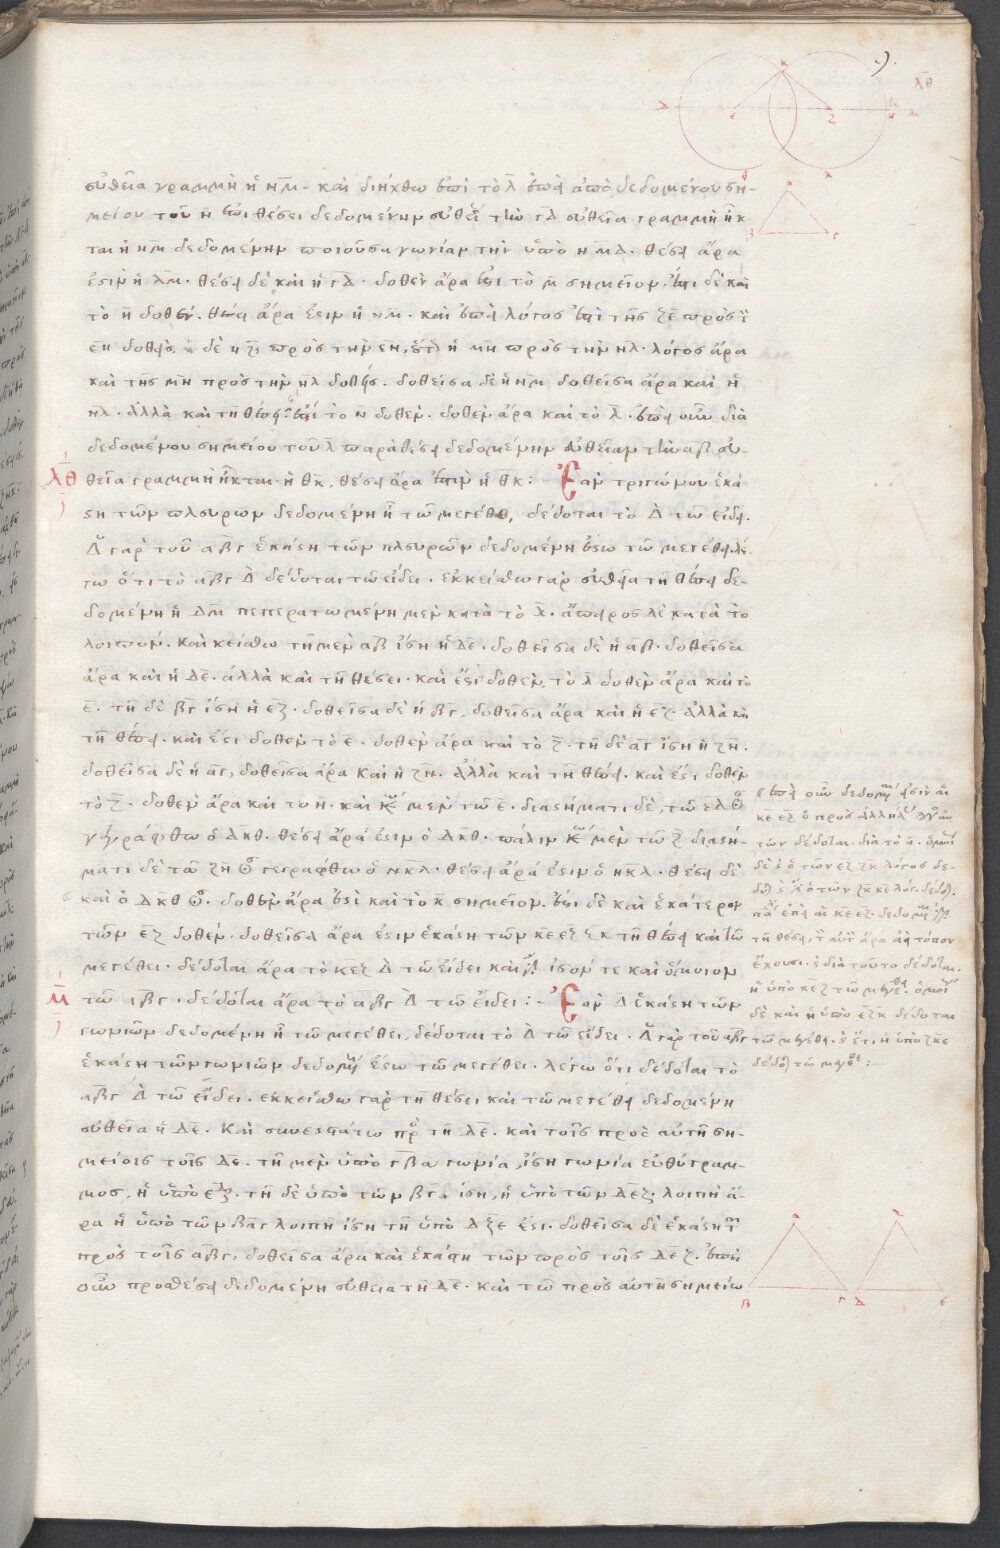 εὐθεῖα γραμμὴ ἡ ν̅μ̅ · καὶ διήχθω ἐπὶ τὸ λ̅ ἐπεὶ ἀπὸ δεδομένου ση-
μείου τοῦ η̅ ἐπι θέσει δεδομένην εὐθεῖαν τὴν γ̅δ̅ εὐθεῖα γραμμὴ ἦκ
ται ἡ η̅μ̅ δεδομένην ποιοῦσα γωνίαν τὴν ὑπὸ η̅μ̅δ̅. θέσει ἄρα
ἐστιν ἡ λ̅μ̅. θέσει δὲ καὶ ἡ γ̅δ̅. δοθὲν ἄρα ἐστι τὸ μ̅ σημεῖον. ἔστι δὲ καὶ
τὸ η̅ δοθέν. θέσει ἄρα ἐστιν ἡ η̅μ̅. καὶ ἐπεὶ λόγος ἐστὶ τῆς ζ̅ε̅ πρὸς τ
ε̅η̅ δοθείς. δὲ ἡ ζ̅ε̅ πρὸς τὴν ε̅η̅, οὕτως ἡ μ̅η̅ πρὸς τὴν η̅λ̅. λόγος ἄρα
καὶ τῆς μ̅η̅ πρὸς τὴν η̅λ̅ δοθείς. δοθεῖσα δὲ ἡ η̅μ̅ δοθεῖσα ἄρα καὶ ἡ
η̅λ̅. ἀλλὰ καὶ τῆ θέσει. ἐστί το η̅ δοθεν. δοθεν ἄρα καὶ τὸ λ̅. ἐπεὶ οὖν διὰ
δεδομένου σημείου τοῦ λ̅ παρὰ θέσει δεδομένην εὐθεῖαν τὴν α̅β̅ εὐ-
λ̅θ̅ θεῖα γραμμὴ ἦκται ἡ θ̅κ̅, θέσει ἄρα ἐστιν ἡ θ̅κ̅ :- Ἐὰν τριγώνου ἑκά-
στη τῶν πλευρων δεδομένη ἦ τῶ μεγέθει, δέδοται τὸ Δ τῶ εἴδει.
Δ γαρ τοῦ α̅β̅γ̅ ἑκάστη τῶν πλευρῶν δεδομένη ἔστω τῶ μεγέθει. λέ-
γω ὅτι τὸ α̅β̅γ̅ Δ δέδοται τῶ εἴδει. ἐκκείσθω γαρ εὐθεῖα τῆ θέσει δε-
δομένη ἡ δ̅μ̅ πεπερατωμένη μεν κατὰ τὸ δ̅. ἄπειρος δὲ κατὰ τὸ
λοιπόν. καὶ κείσθω τῆ μεν α̅β̅ ἴση ἡ δ̅ε̅. δοθεῖσα δὲ ἡ α̅β̅. δοθεῖσα
ἄρα καὶ ἡ δ̅ε̅. ἀλλὰ καὶ τῆ θέσει. καὶ ἔστι δοθεν τὸ δ̅ δοθεν ἄρα καὶ το
ε̅. τῆ δὲ β̅γ̅ ἴση ἡ ε̅ζ̅. δοθεῖσα δὲ ἡ β̅γ̅, δοθεῖσα ἄρα καὶ ἡ ε̅ζ̅ ἀλλὰ καὶ
τῆ θέσει. καὶ ἔστι δοθεν τὸ ε̅. δοθεν ἄρα καὶ τὸ ζ̅. τῆ δὲ α̅γ̅ ἴση ἡ ζ̅η̅.
δοθεῖσα δὲ ἡ α̅γ̅, δοθεῖσα ἄρα καὶ ἡ ζ̅η̅. ἀλλὰ καὶ τῆ θέσει. καὶ ἔστι δοθεν
τὸ ζ̅. δοθεν ἄρα καὶ το η̅. καὶ κέντρω μεν τῶ ε̅. διαστήματι δὲ, τῶ ε̅δ̅
γεγράφθω ὁ δ̅κ̅θ̅. θέσει ἄρά ἐστιν ὁ δ̅κ̅θ̅. πάλιν κέντρω μεν τῶ ζ̅ διαστή-
ματι δὲ τῶ ζ̅η̅ γεγράφθω ὁ η̅κ̅λ̅. θέσει ἄρά ἐστιν ὁ η̅κ̅λ̅. θέσει δὲ
καὶ ὁ δ̅κ̅θ̅. δοθὲν ἄρα ἐστὶ καὶ τὸ κ̅ σημεῖον. ἔστι δὲ καὶ ἑκάτερον
τῶν ε̅ζ̅ δοθεν. δοθεῖσα ἄρα ἐστιν ἑκάστη τῶν κ̅ε̅ ε̅ζ̅ ζ̅κ̅ τῆ θέσει καὶ τῶ
μεγέθει. δέδοται ἄρα τὸ κ̅ε̅ζ̅ Δ τῶ εἴδει καὶ ἔστιν ἰσόν τε καὶ ὅμοιον
μ̅ τῶ α̅β̅γ̅. δέδοται ἄρα τὸ α̅β̅γ̅ Δ τῶ εἴδει :- Ἐὰν Δ ἑκάστη τῶν
γωνιῶν δεδομένη ἦ τῶ μεγέθει, δέδοται τὸ Δ τῶ εἴδει. Δ γαρ τοῦ α̅β̅γ̅
ἑκάστη τῶν γωνιῶν δεδομένη ἔστω τῶ μεγέθει. λέγω ὅτι δέδοται τὸ
α̅β̅γ̅ Δ τῶ εἴδει. ἐκκείσθω γαρ τῆ θέσει καὶ τῶ μεγέθει δεδομένη
εὐθεῖα ἡ δ̅ε̅. καὶ συνεστάτω πρὸς τῆ δ̅ε̅. καὶ τοῖς πρὸς αὐτῆ ση-
μείοις τοῖς δ̅ε̅. τῆ μεν ὑπὸ γ̅β̅α̅ γωνία, ἴση γωνία εὐθύγραμ-
μος, ἡ ὑπὸ ε̅δ̅ζ̅. τῆ δὲ ὑπὸ τῶν β̅γ̅α̅ ἴση, ἡ ὑπὸ τῶν δ̅ε̅ζ̅. λοιπὴ ἄ-
ρα ἡ ὑπὸ τῶν β̅α̅γ̅ λοιπῆ ἴση τῆ ὑπὸ δ̅ζ̅ε̅ ἐστι. δοθεῖσα δὲ ἑκάστη τῶν
πρὸς τοῖς α̅β̅γ̅, δοθεῖσα ἄρα καὶ ἑκάστη τῶν πρὸς τοῖς δ̅ε̅ζ̅. ἐπεὶ
οὖν προς θέσει δεδομένη εὐθεια τῆ δ̅ε̅ καὶ τῶ πρὸς αὐτῆ σημείω
ἐπεὶ οὖν δεδομέναι εἰσὶν αἱ
κε εζ ὁ προς ἀλλήλας
των δέδοται. διὰ τὸ α. ὁμοίως
δὲ ὁ τῶν εζ ζκ λόγος δέ-
τῆ θέσει, ἄρα ἀεὶ τόπον
ἔχουσι. διὰ τοῦτο δέδοται.
ἡ ὑπὸ κεζ τῶ μεγέθει. ὁμοίως
δὲ καὶ ἡ ὑπὸ εζκ δέδοται
τῶ μεγέθει. ἔτι ἡ ὑπὸ ζκε
δέδοται τῶ μεγέθει :-